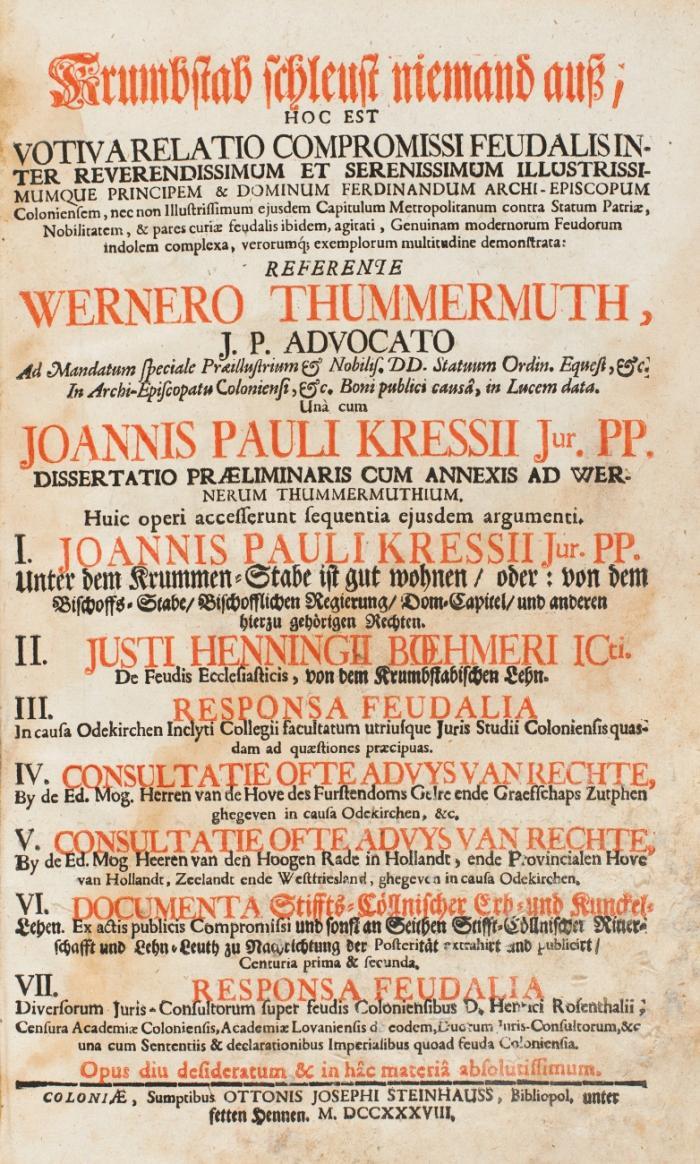 Krumbstab schleust niemand auß;
HOC EST
VOTIVA RELATIO COMPROMISSI FEUDALIS IN-
TER REVERENDISSIMUM ET SERENISSIMUM ILLUSTRISSI-
MUMQUE PRINCIPEM & DOMINUM FERDINANDUM ARCHI-EPISCOPUM
Coloniensem, nec non Illustrissimum ejusdem Capitulum Metropolitanum contra Statum Patriæ,
Nobilitatem, & pares curiæ feudalis ibidem, agitati, Genuinam modernorum Feudorum
indolem complexa, verorumq; exemplorum multitudine demonstrata:
REFERENTE
WERNERO THUMMERMUTH,
J. P. ADVOCATO
Ad Mandatum speciale Præillustrium & Nobilis. DD. Statuum Ordin. Equest, &c.
In Archi-Episcopatu Coloniensi, &c. Boni publici causâ, in Lucem data.
Unà cum
JOANNIS PAULI KRESSII Jur. PP.
DISSERTATIO PRÆLIMINARIS CUM ANNEXIS AD WER-
NERUM THUMMERMUTHIUM.
Huic operi accesserunt sequentia ejusdem argumenti.
I. JOANNIS PAULI KRESSII Jur. PP.
Unter dem Krummen-Stabe ist gut wohnen / oder: von dem
Bischoffs-Stabe/ Bischofflichen Regierung/ Dom-Capitel/ und anderen
hierzu gehörigen Rechten.
II. JUSTI HENNINGII BŒHMERI ICti.
De Feudis Ecclesiasticis, von dem Krumbstabischen Lehn.
III. RESPONSA FEUDALIA
In causa Odekirchen Inclyti Collegii facultatum utriusque Juris Studii Coloniensis quas-
dam ad quæstiones præcipuas.
IV. CONSULTATIE OFTE ADVYS VAN RECHTE,
By de Ed. Mog. Herren van de Hove des Furstendoms Gelre ende Graefschaps Zutphen
ghegeven in causa Odekirchen, &c.
V. CONSULTATIE OFTE ADVYS VAN RECHTE,
By de Ed. Mog Heeren van den Hoogen Rade in Hollandt, ende Provincialen Hove
van Hollandt, Zeelandt ende Westfriesland, ghegeven in causa Odekirchen.
VI. DOCUMENTA Stiffts-Cöllnischer Erb- und Kunckel-
Lehen. Ex actis publicis Compromissi und sonst an Seithen Stifft-Cöllnischer Ritter-
schafft und Lehn-Leuth zu Nachrichtung der Posterität extrahirt und publicirt/
Centuria prima & secunda.
VII. RESPONSA FEUDALIA
Diversorum Juris-Consultorum super feudis Coloniensibus D. Henrici Rosenthalii;
Censura Academiæ Coloniensis, Academiæ Lovaniensis de eodem, Duorum Juris-Consultorum, &c
una cum Sententiis & declarationibus Imperialibus quoad feuda Coloniensia.
Opus diu desideratum & in hâc materiâ absolutissimum.
COLONIÆ, Sumptibus OTTONIS JOSEPHI STEINHAUSS, Bibliopol. unter
fetten Hennen. M. DCCXXXVIII.